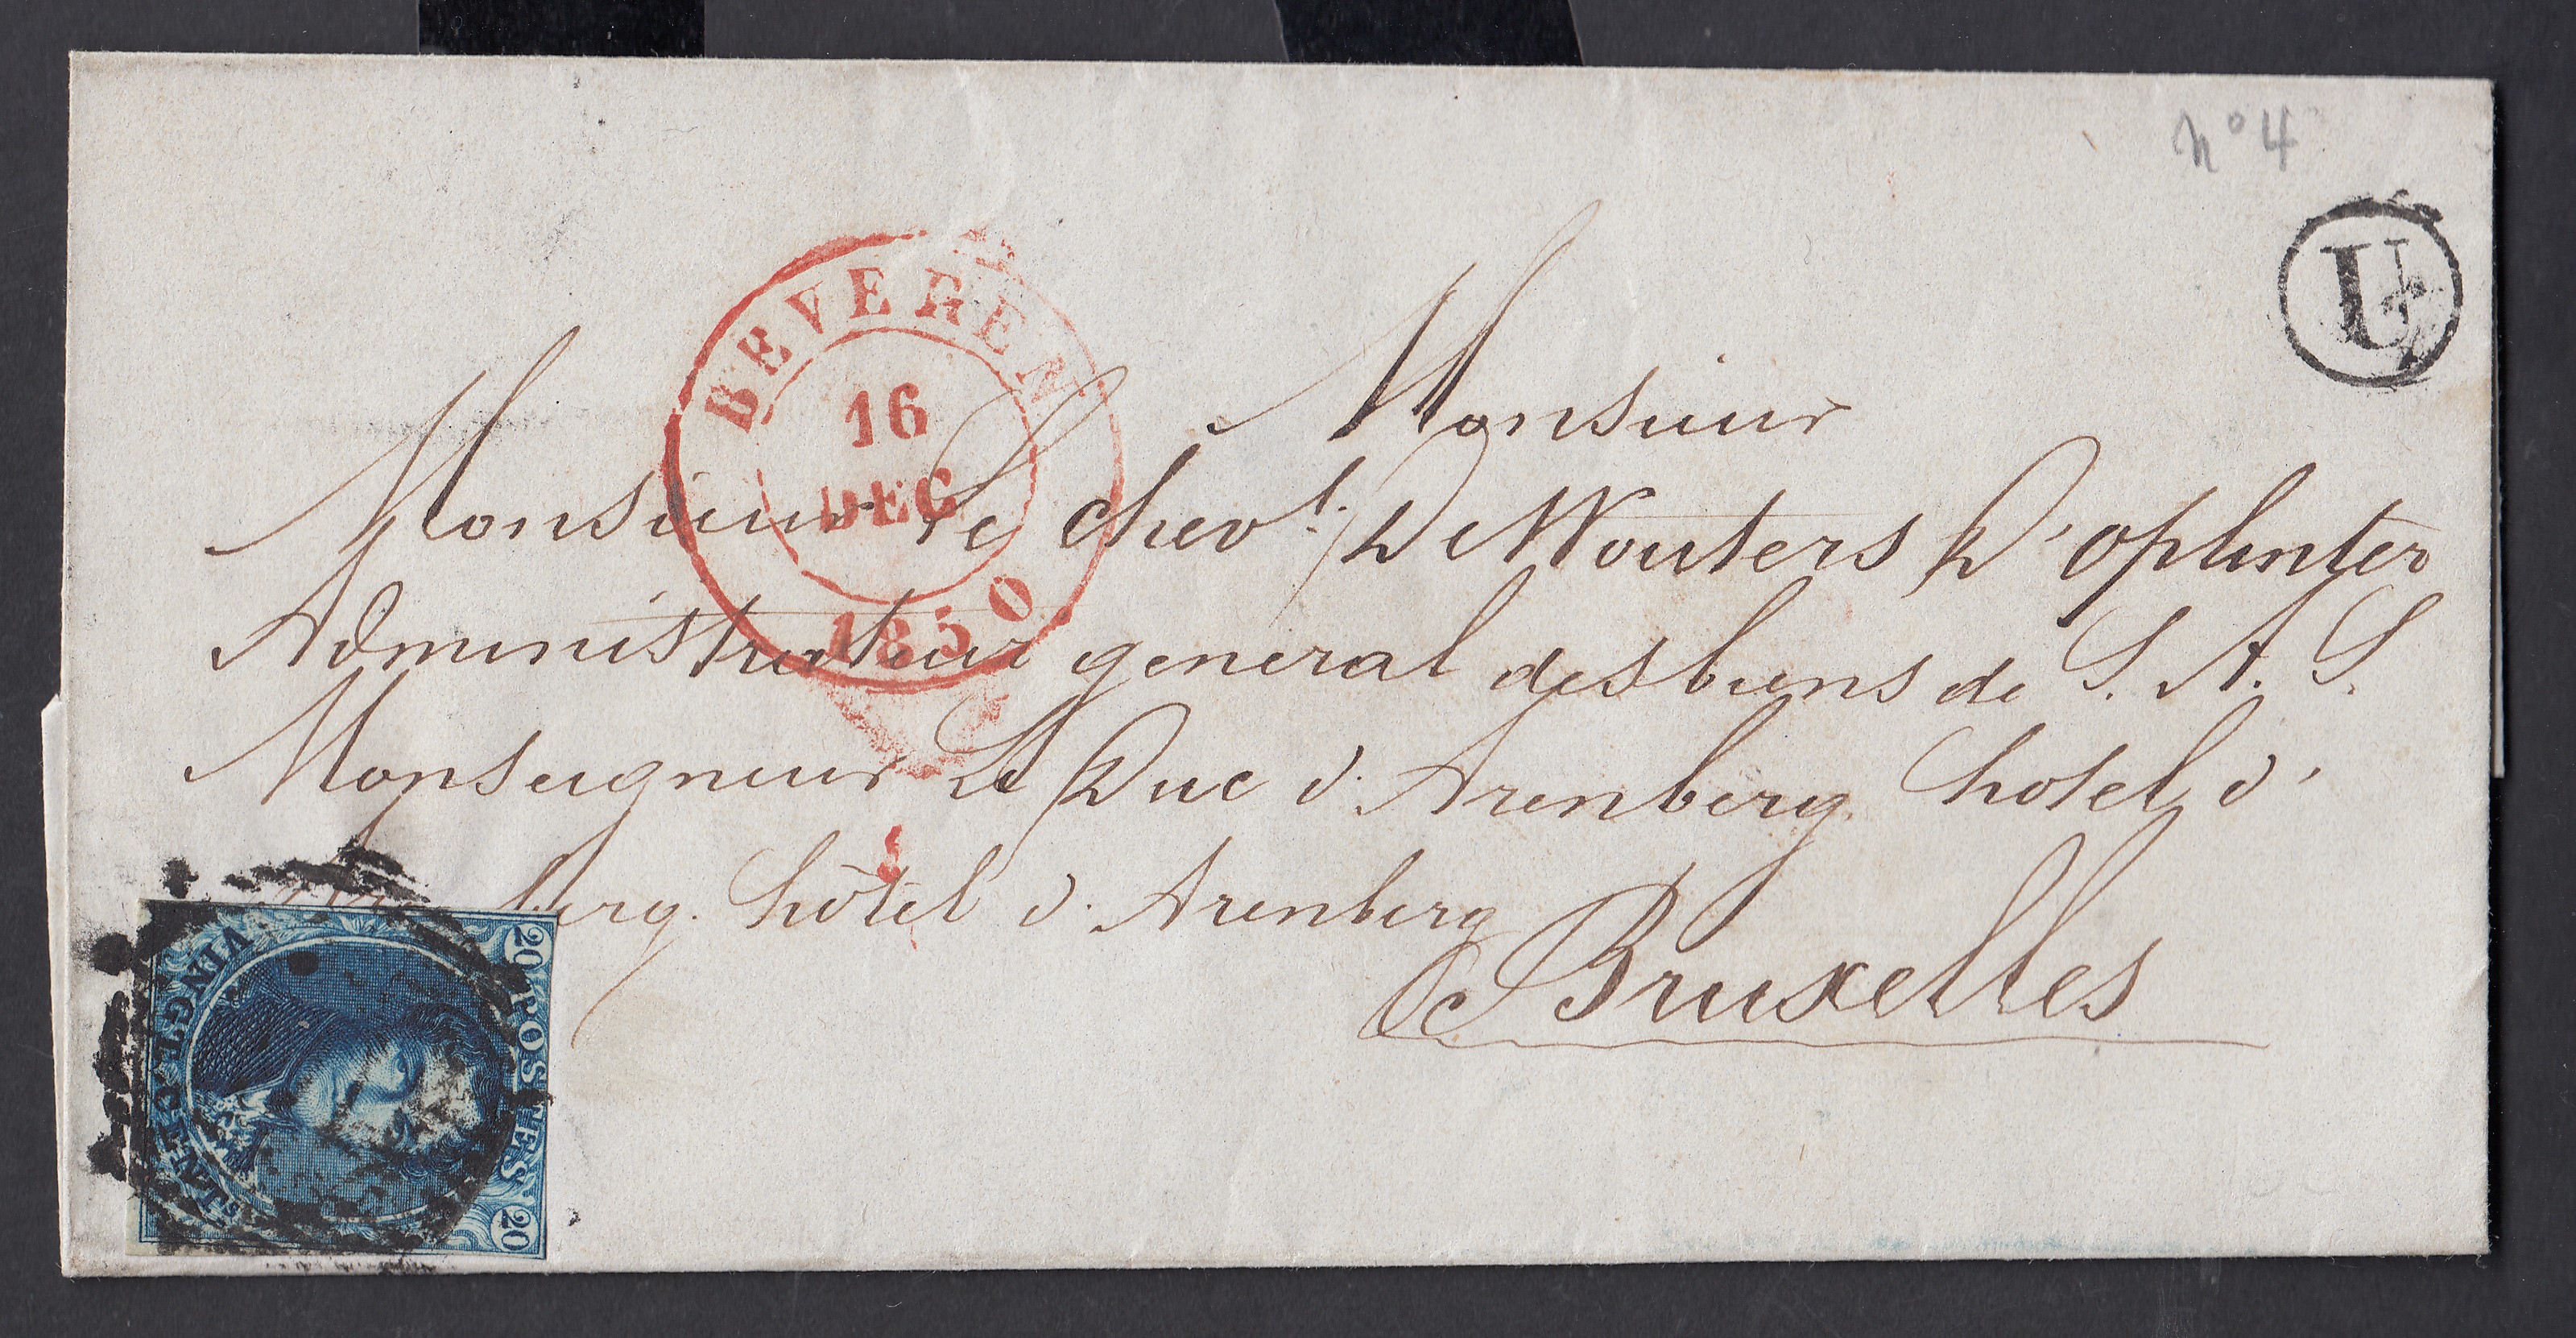 n° 4
U
BEVEREN
16
DEC
1850
Monsieur
Monsieur Le chevr. De Wouters D'Oplinter
Administrateur general des biens de S. A. S.
Monseigneur Le Duc d'Arenberg hotel d'
berg. hôtel d'Arenberg
a Bruxelles
20 POSTES 20
VINGT CENTS